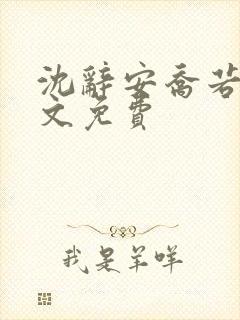 沈辞安喬若
文免費
我是羊咩